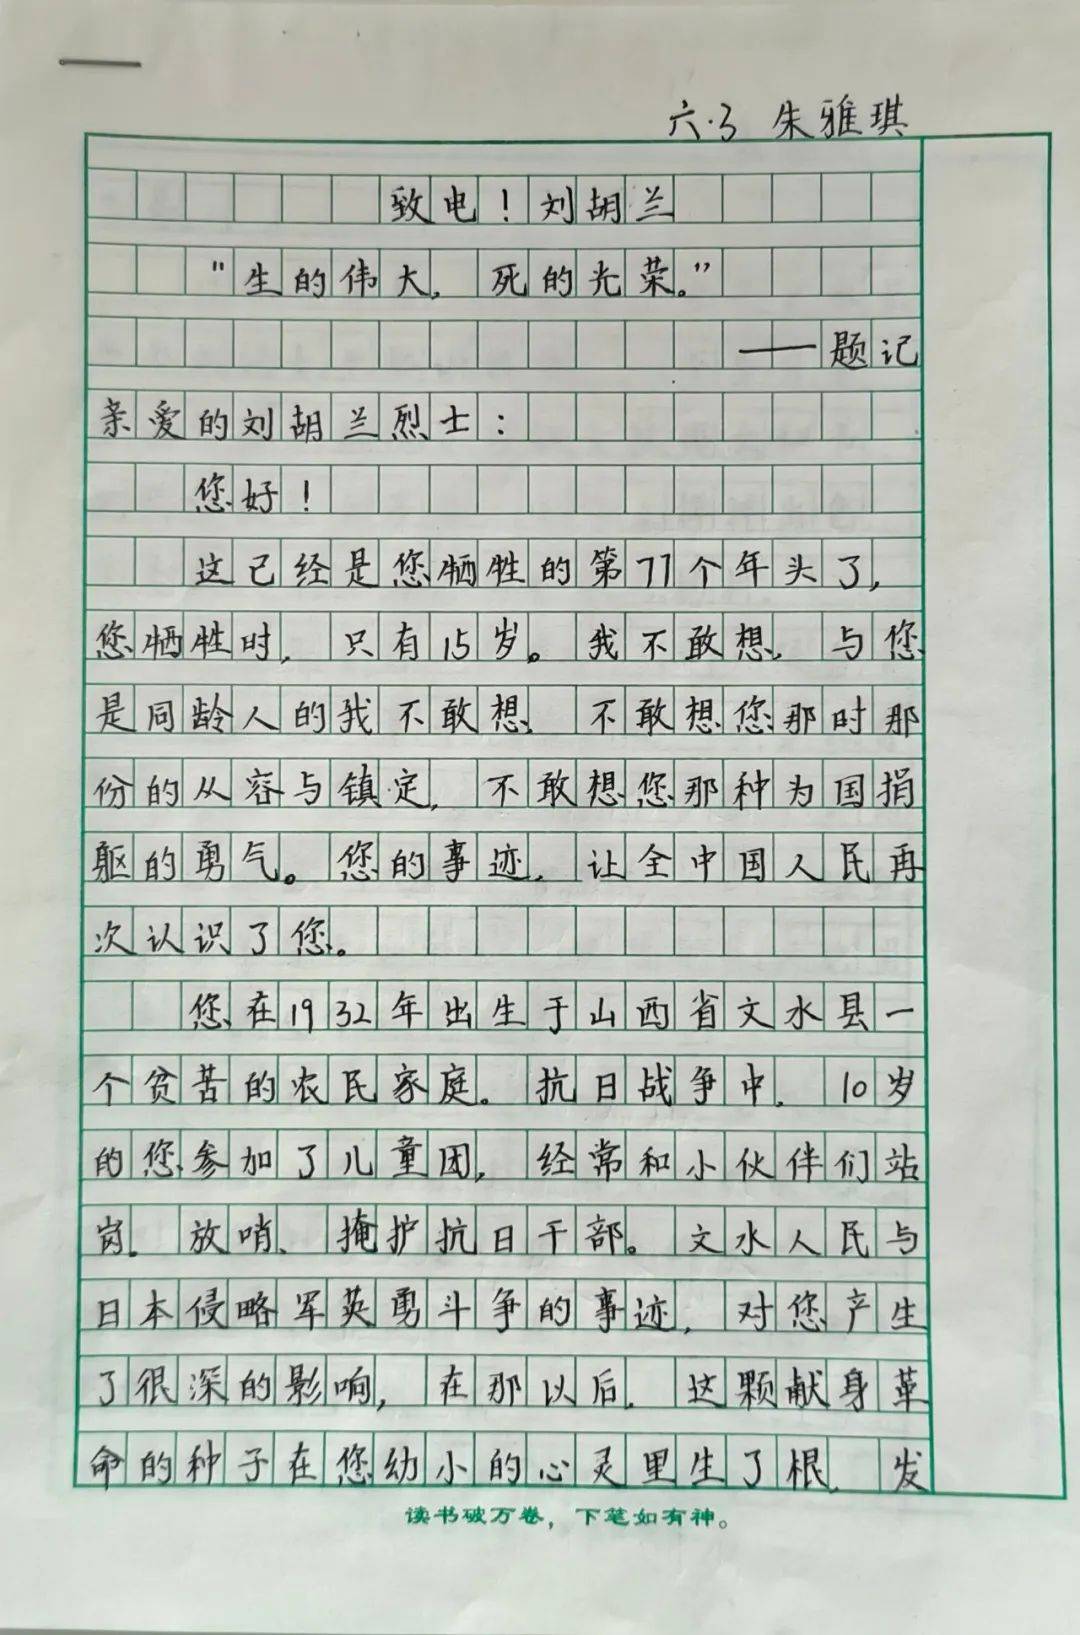 六.3 朱雅琪
致电！刘胡兰
“生的伟大，死的光荣。”
——题记
亲爱的刘胡兰烈士：
您好！
这已经是您牺牲的第77个年头了，
您牺牲时，只有15岁。我不敢想，与您
是同龄人的我不敢想、不敢想您那时那
份的从容与镇定，不敢想您那种为国捐
躯的勇气。您的事迹，让全中国人民再
次认识了您。
您在1932年出生于山西省文水县一
个贫苦的农民家庭。抗日战争中，10岁
的您参加了儿童团，经常和小伙伴们站
岗。放哨、掩护抗日干部。文水人民与
日本侵略军英勇斗争的事迹，对您产生
了很深的影响，在那以后，这颗献身革
命的种子在您幼小的心灵里生了根、发
读书破万卷，下笔如有神。